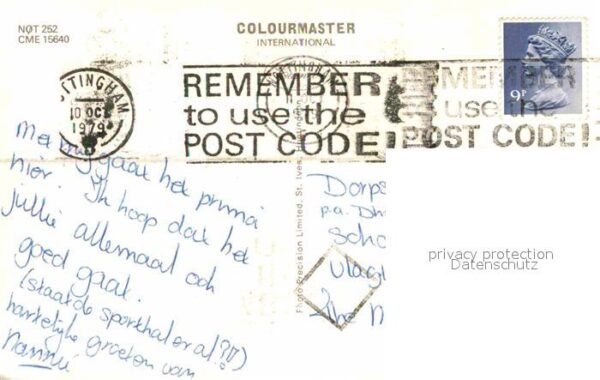 NOT 252
CME 15640
COLOURMASTER
INTERNATIONAL
NOTTINGHAM
10 OC
1979
REMEMBER
to use the
POST CODE!
REMEMBER
use the
POST CODE!
9P
Met mij gaat het prima
hier. Ik hoop dat het
jullie allemaal ook
goed gaat.
(staat de sporthal er al?!!)
hartelijke groeten van
Nannie
Photo Precision Limited, St. Ives, Huntingdon
Dorps
p.a. Dhr
Scho
Vlag
The N
privacy protection
Datenschutz